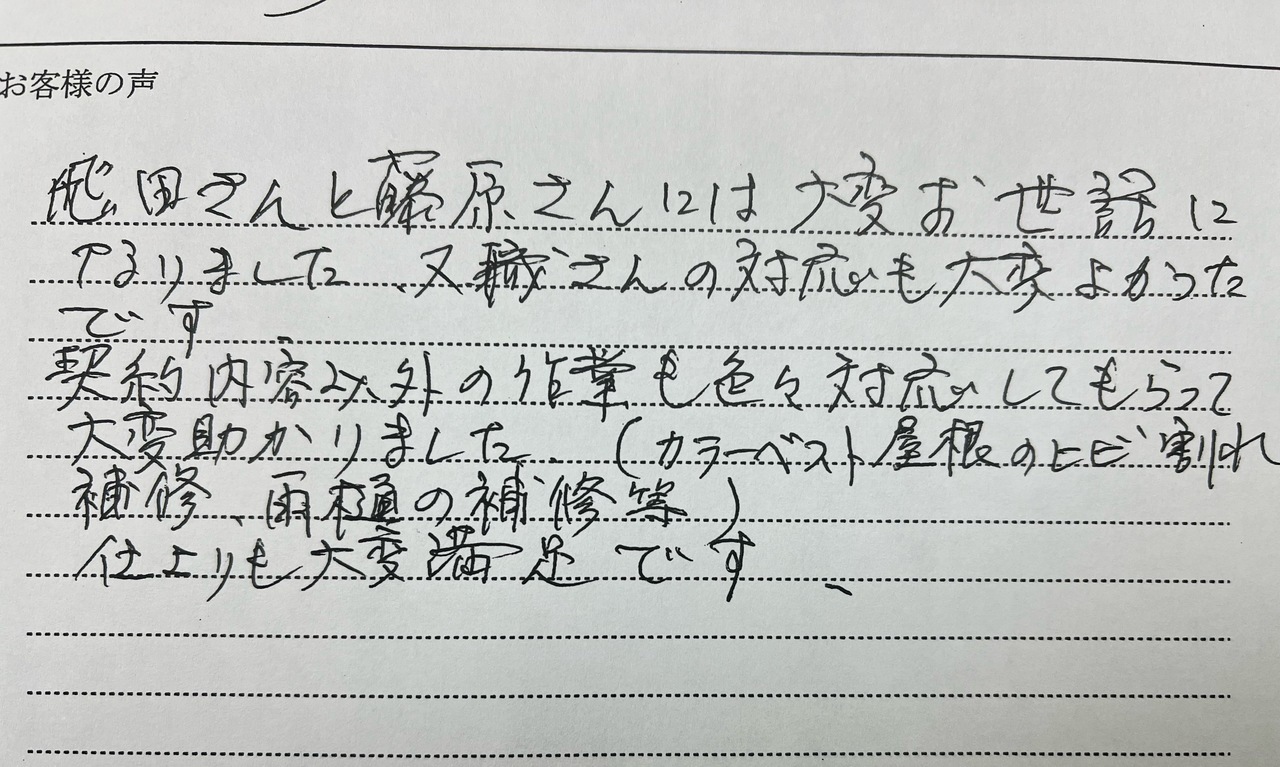 お客様の声
飛田さんと藤原さんには大変お世話に
なりました、又職さんの対応も大変よかった
です
契約内容以外の作業も色々対応してもらって
大変助かりました、(カラーベスト屋根のヒビ割れ
補修、雨樋の補修等)
仕上りも大変満足です、